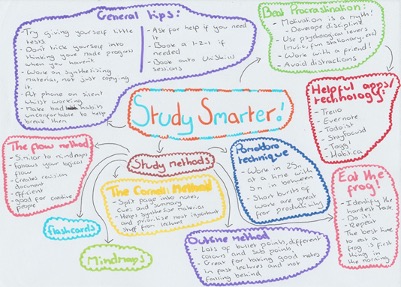 General tips:
- Try giving yourself little
tests
- Don't trick yourself into
thinking you've made progress
when you haven't
- Work on synthesising
material, not just copying
it.
- Put phone on silent
whilst working
- Make bad habits
uncomfortable to help
break them
- Ask for help if you need
it
- Book a 1-2-1 if
needed
- Book onto UniSkills
sessions
Beat Procrastination:
- Motivation is a myth!
Develop discipline
- Use psychological levers
music, fun stationery etc
- Work with a friend!
- Avoid distractions
Study Smarter!
Helpful apps/
technology:
- Trello
- Evernote
- Todoist
- Habitica
The flow method
- Similar to mindmap
follows your logical
flow
- Creates revision
document
- Good for creative
people
Study methods:
Pomodoro
technique
- Work in 25 min
at a time with
5 min between
- Short bursts of
work are great
for productivity
The Cornell Method
- Split page into notes,
cues and summary
- Helps synthesise material
and figure out most important
stuff from lecture
Eat the
frog!
- Identify the
harder tasks
- Do it
- Repeat
- The best time
to eat a
frog is first
thing in
the morning
flashcards
Mindmaps
Outline method
- Lots of bullet points, different
colours and sub points
- Great for making good notes
in fast lectures and not
falling behind